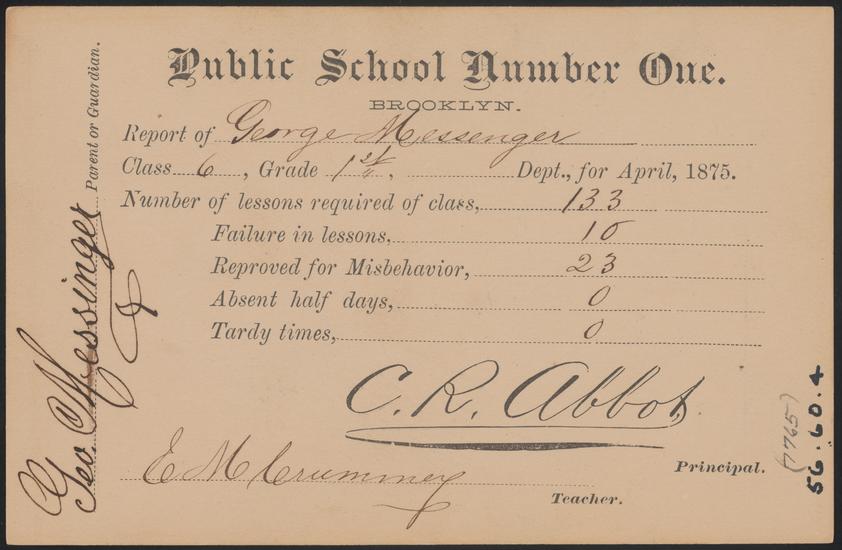 Public School Number One.
BROOKLYN.
Report of George Messenger
Class 6, Grade 1st, Dept., for April, 1875.
Number of lessons required of class, 133
Failure in lessons, 10
Reproved for Misbehavior, 23
Absent half days, 0
Tardy times, 0
C. R. Abbot
Principal.
E M Crummey
Teacher.
Geo. Messinger
Parent or Guardian.
56.60.4